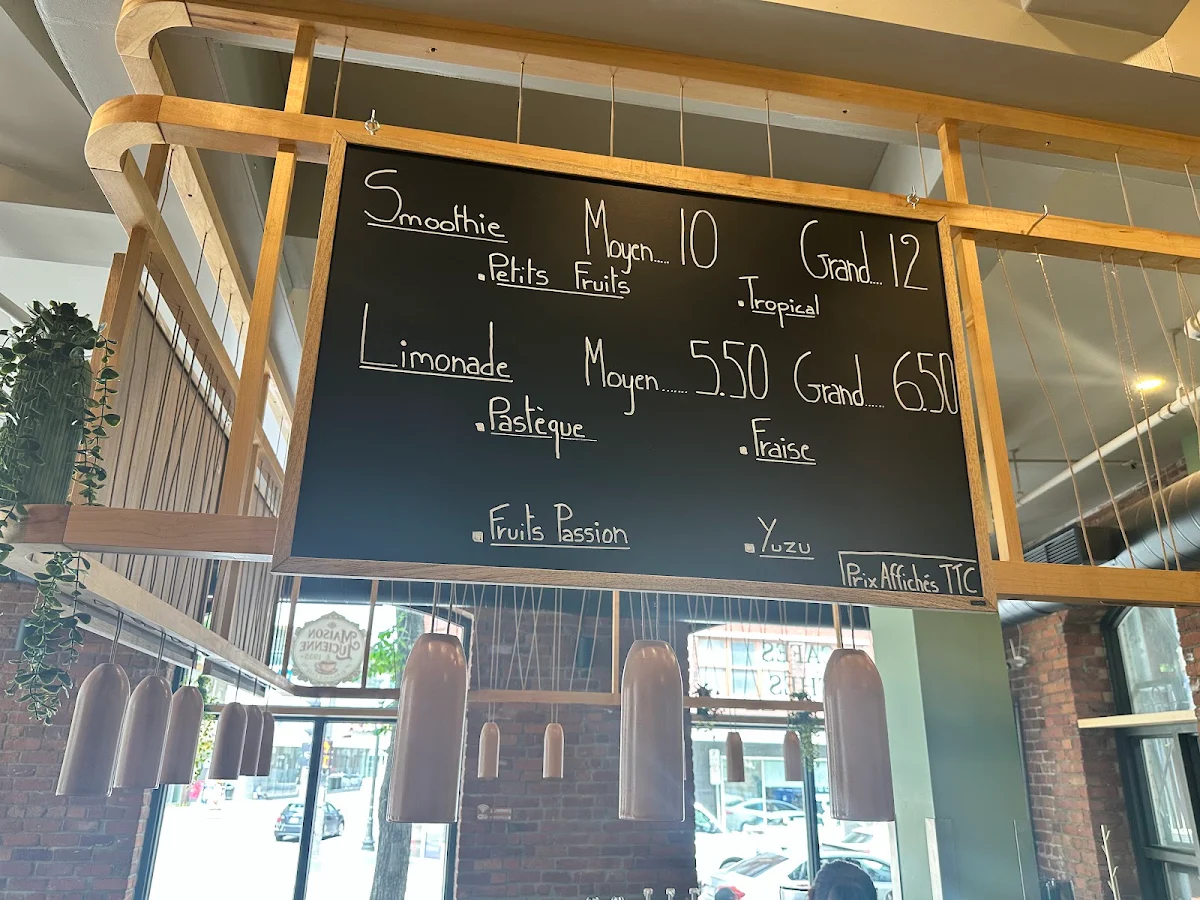 Smoothie Moyen..... 10 Grand.... 12
. Petits Fruits . Tropical
Limonade Moyen....... 5.50 Grand...... 6.50
. Pastèque . Fraise
. Fruits Passion . Yuzu
Prix Affichés TTC
MAISON
LUCIENNE
CAFÉS